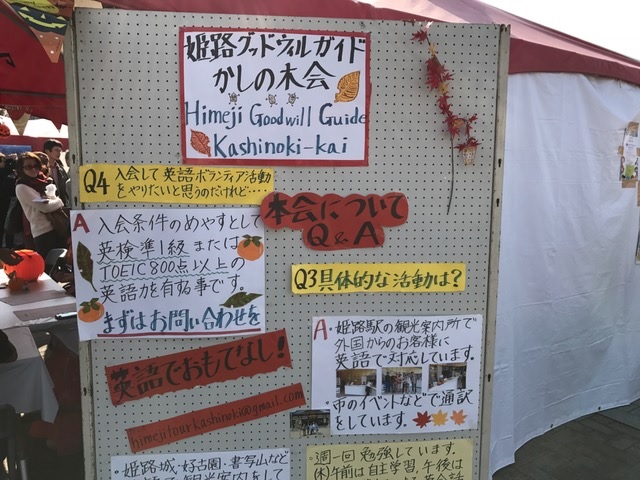 姫路グッドウィルガイド
かしの木会
Himeji Goodwill Guide
Kashinoki-kai
Q4 入会して英語ボランティア活動
をやりたいと思うのだけれど…
A 入会条件のめやすとして
英検準1級または
TOEIC800点以上の
英語力を有する事です。
まずはお問い合わせを
本会について
Q&A
Q3 具体的な活動は?
A・姫路駅の観光案内所で
外国からのお客様に
英語で対応しています。
・市のイベントなどで通訳
をしています。
英語でおもてなし!
himejitourkashinoki@gmail.com
・姫路城・好古園・書写山など
観光案内をして
・週一回勉強しています。
(木)午前は自主学習、午後は